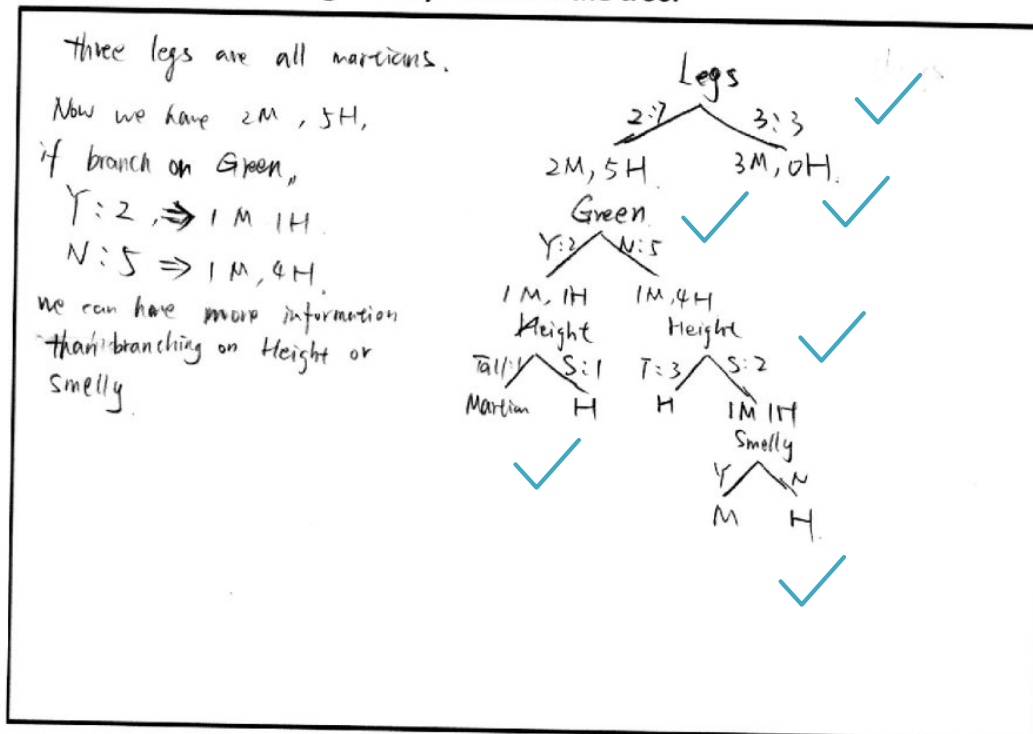 three legs are all martians.
Now we have 2M, 5H,
if branch on Green,
Y: 2, ⇒ 1 M 1H.
N: 5 ⇒ 1 M, 4H.
we can have more information
than branching on Height or
Smelly.
Legs
2:7 3:3
2M, 5H. 3M, 0H.
Green
Y:2 N:5
1M, 1H 1M, 4H
Height Height
Tall:1 S:1 T:3 S:2
Martian H H 1M 1H
Smelly
Y N
M H.